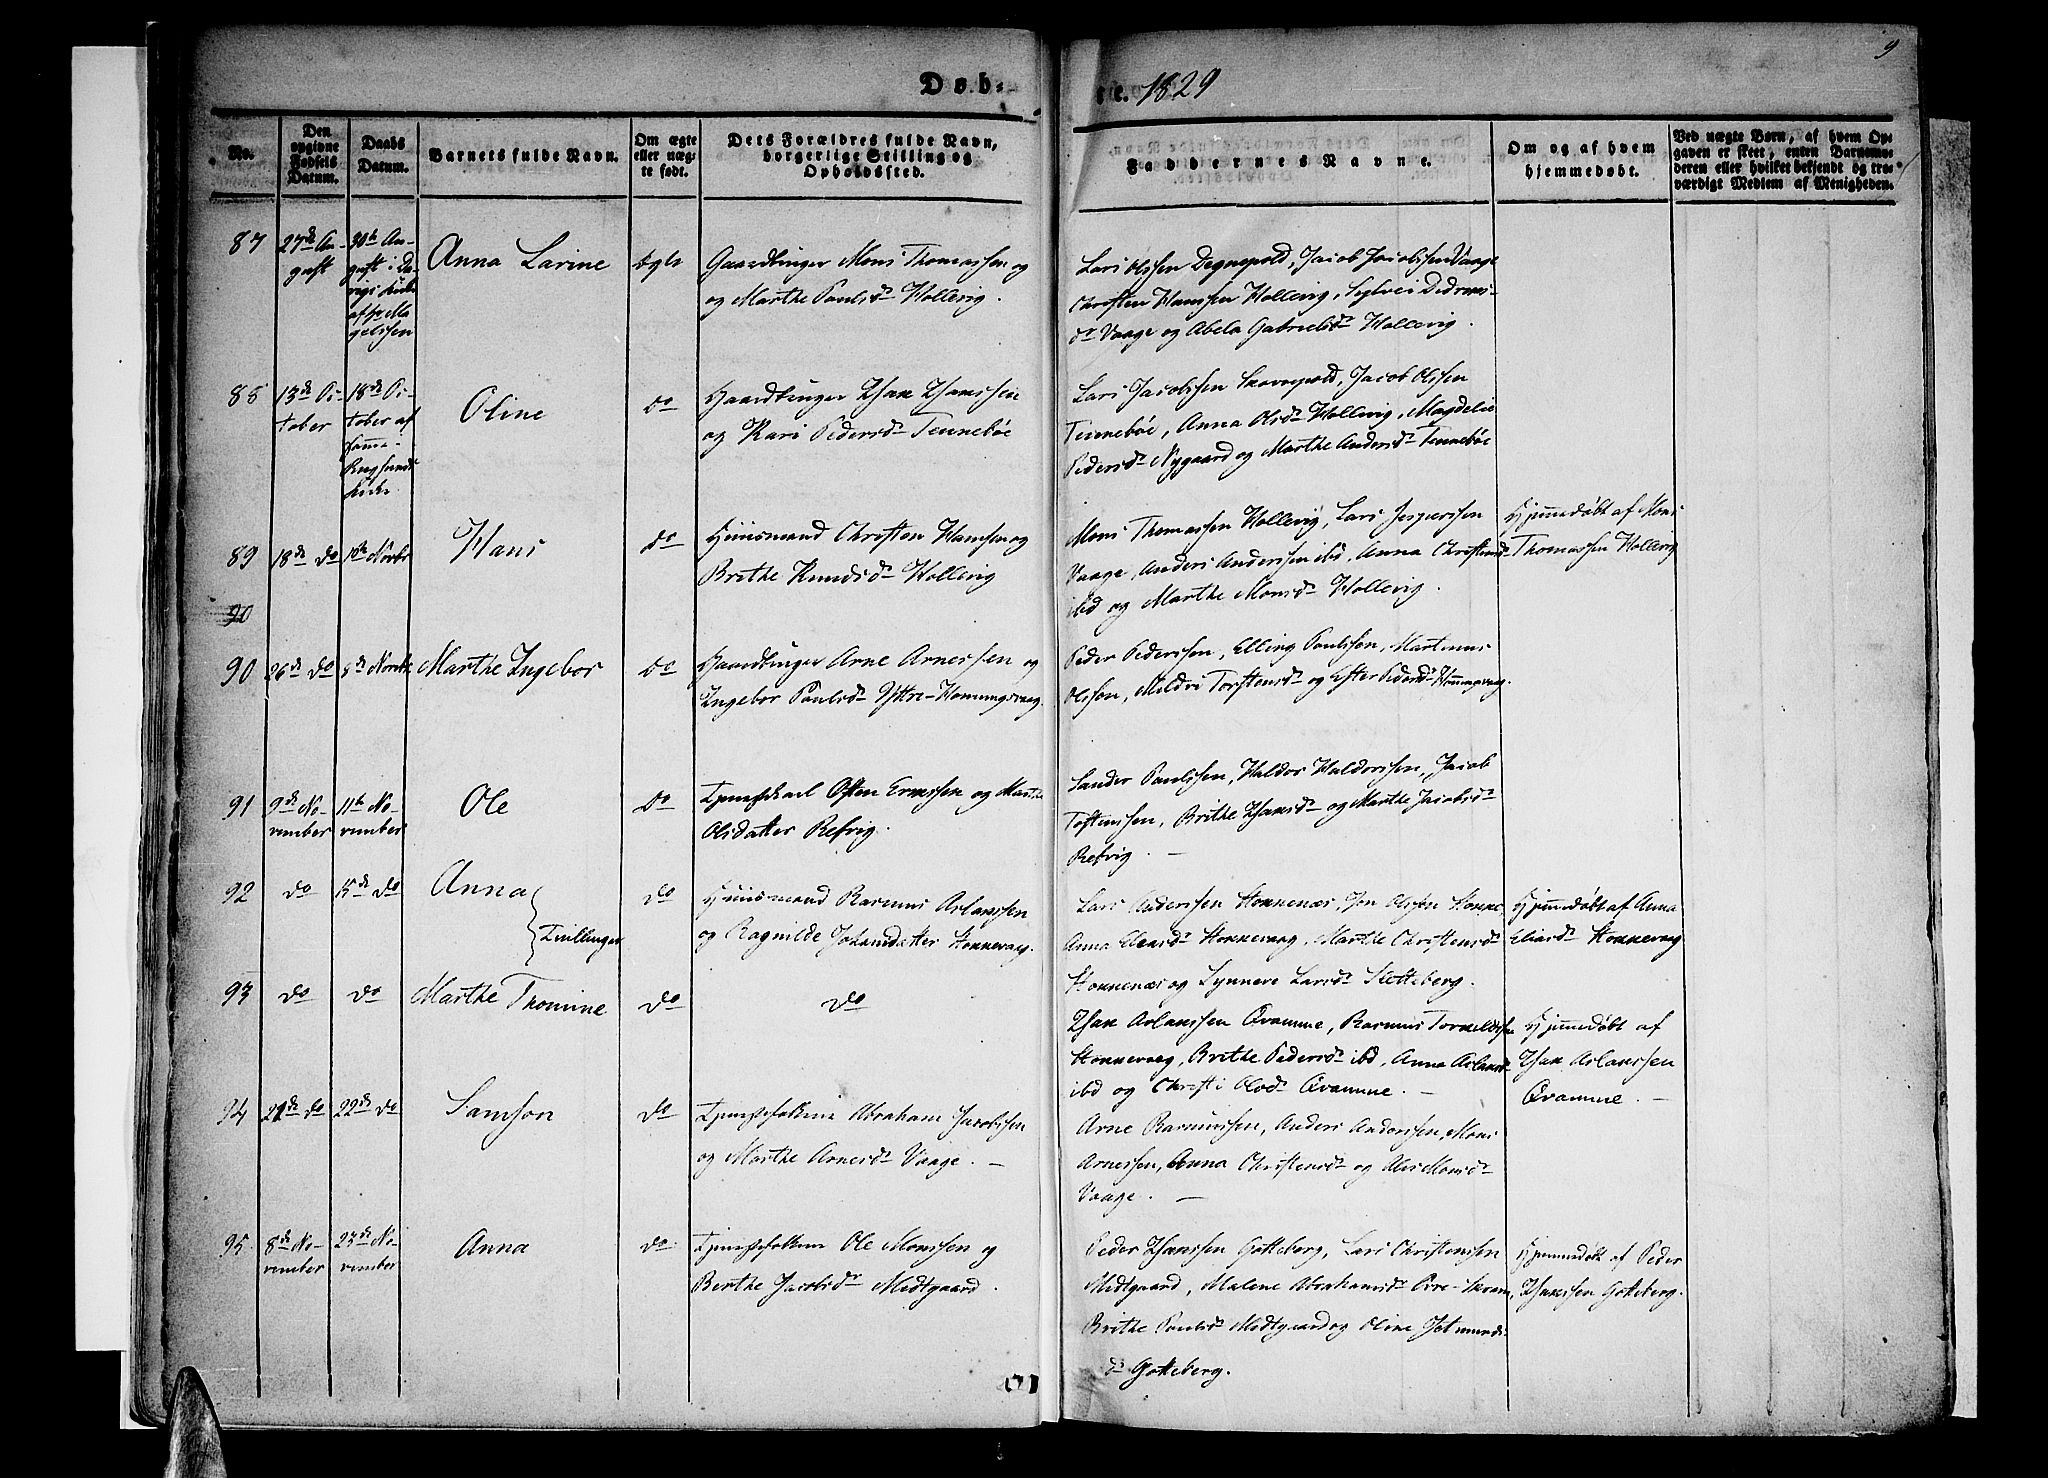 Døb-
te. 1829
9
No.
Den opgivne Fødsels Datum.
Daabs Datum.
Barnets fulde Navn.
Om ægte eller uægte født.
Dets Forældres fulde Navn, borgerlige Stilling og Opholdssted.
Faddernes Navne.
Om og af hvem hjemmedøbt.
Ved uægte Børn, af hvem Opgaven er skeet, enten Barnemoderen eller hvilket bekjendt og troværdigt Medlem af Menigheden.
87
27de Au-
gust
30te Au-
gust i Da-
vigs Kirke
af Hr Ma
gelssen
Anna Larine
Ægte
Gaardbruger Mons Thomassen og
og Marthe Paulsdr Hollevig.
Lars Olssen Degnepold, Jacob Jacobssen Vaage
Christen Hanssen Hollevig, Sylvei Didriks-
dr Vaage og Abela Gabrielsdr Hollevig.
88
13de Oc-
tober
18de Oc-
tober af
samme
Kirke.
Oline
do
Gaardbruger Isak Hanssen
og Kari Pedersdr Tennebøe
Lars Jacobssen Skavepold, Jacob Olssen
Tennebøe, Anna Olsdr Hollevig, Magdeli
Pedersdr Nygaard og Marthe Andersdr Tennebøe
89
18de do
1ste Novbr
Hans
do
Huusmand Christen Hanssen og
Brithe Knudsdr Hollevig
Mons Thomassen Hollevig, Lars Jespersen
Vaage, Anders Anderssen ibd, Anna Christensdr
ibd og Marthe Monsdr Hollevig.
Hjemmedøbt af Mons
Thomassen Hollevig
90
90
26de do
8de Novbr
Marthe Ingebor
do
Gaardbruger Arne Arnessen og
Ingebor Paulsdr Yttre-Honningsvaag.
Peder Pederssen, Elling Paulssen, Martinus
Olssen, Mildri Torstensdr og Ester Pedersdr Honningsvaag.
91
9de No-
vember
11te No-
vember
Ole
do
Tjenestekarl Østen Ernssen og Marthe
Olsdatter Refvig.
Sander Paulssen, Haldor Haldorssen, Jacob
Tostenssen, Brithe Hansdr og Marthe Jacobsdr
Refvig. —
92
do
15de do
Anna
Tvillinger
do
Huusmand Rasmus Aslakssen
og Ragnilde Johansdatter Stokkevaag.
Lars Anderssen Stokkenæs, Jon Olssen Stokke,
Anna Eliasdr Stokkevaag, Marthe Christensdr
Stokkenæs og Synneve Larsdr Sletteberg.
Hjemmedøbt af Anna
Eliasdr Stokkevaag
93
do
do
Marthe Thomine
do
do
Isak Aslakssen Qvamme, Rasmus Torkeldssen
Stokkevaag, Brithe Pedersdr ibd, Anna Aslaksdr
ibd og Christi Olsdr Qvamme. —
Hjemmedøbt af
Isak Aslakssen
Qvamme. —
94
21de do
22de do
Samson
do
Tjenestefolkene Abraham Jacobssen
og Marthe Arnesdr Vaage. —
Arne Rasmussen, Anders Anderssen, Mons
Arnessen, Anna Christensdr og Alis Monsdr
Vaage. —
95
8de No-
vember
23de No-
vember
Anna
do
Tjenestefolkene Ole Monssen og
Berthe Jacobsdr Midtgaard.
Peder Hanssen Gotteberg, Lars Christenssen
Midtgaard, Malene Abrahamsdr Øvre-Skram,
Brithe Paulsdr Midtgaard og Oline Jetmunds-
dr Gotteberg.
Hjemmedøbt af Peder
Hanssen Gotteberg.